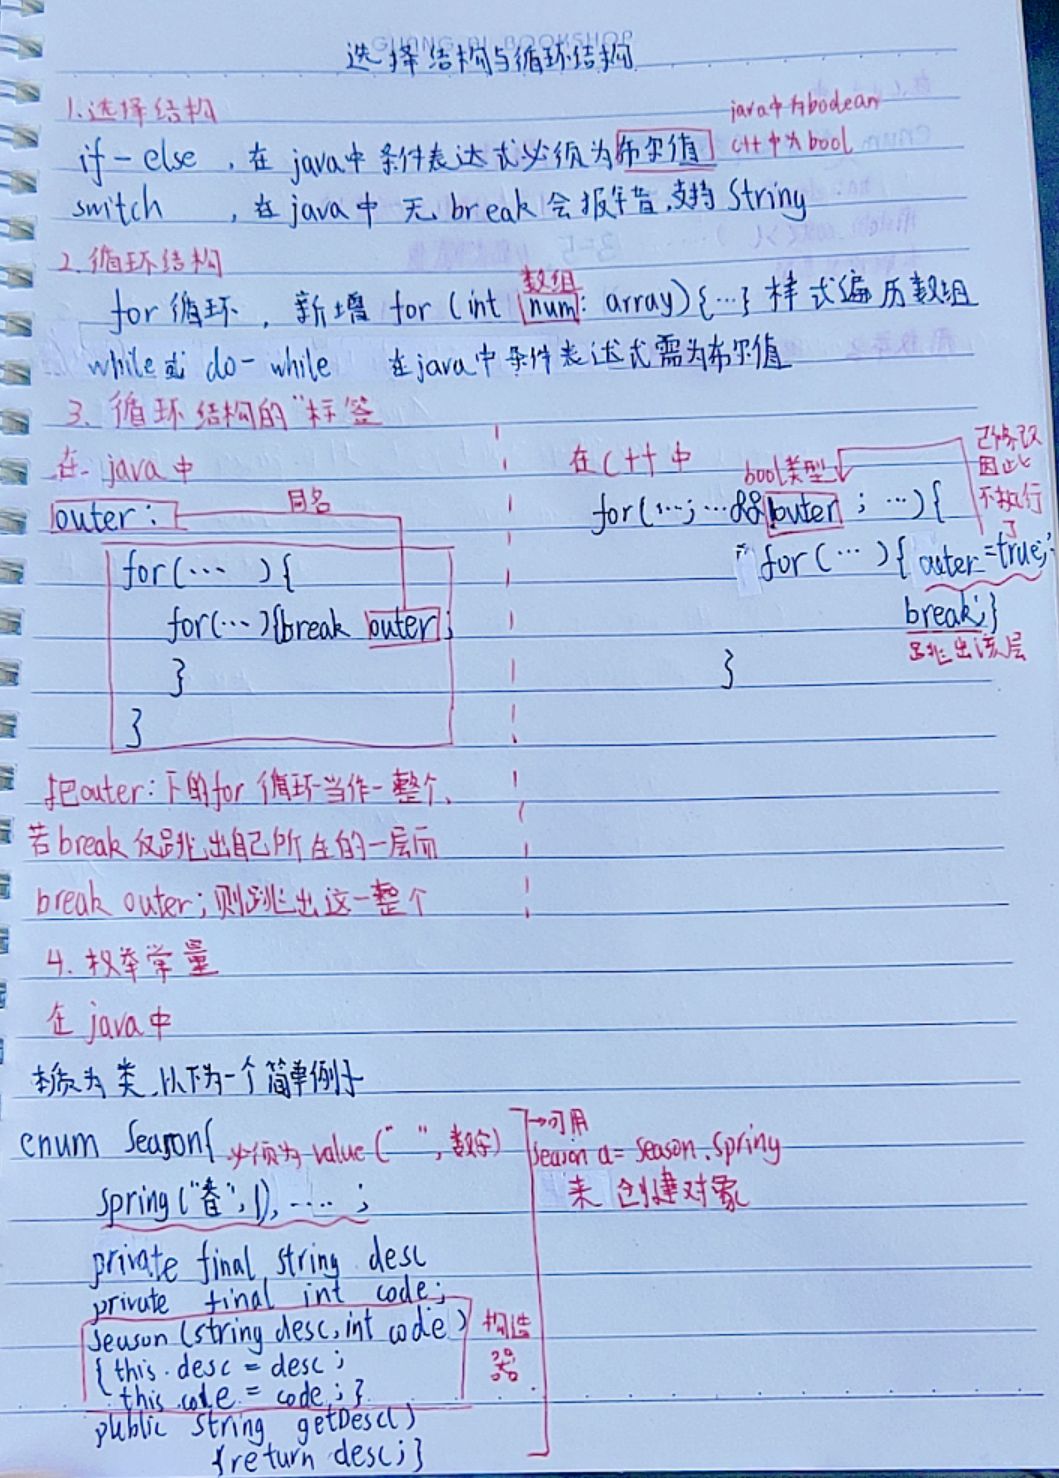 GUANG DI BOOKSHOP
选择结构与循环结构
1.选择结构
java中为boolean
if-else ,在 java中 条件表达式必须为布尔值 c++中为bool
switch ,在java中 无 break 会报错,支持 String
2.循环结构
数组
for 循环 , 新增 for (int num: array){…} 样式遍历数组
while或 do-while 在java中条件表达式需为布尔值
3. 循环结构的"标签
在 java 中
outer: 同名
for(… ){
for(…){break outer;
}
}
在C++中
bool类型
已修改
因此
不执行
了
for(…;…&&!outer ; …){
for(…){ outer=true;
break;}
跳出该层
}
把outer:下的for 循环当作一整个,
若break 仅跳出自己所在的一层而
break outer;则跳出这一整个
4. 枚举常量
在 java中
本质为 类,以下为一个简单例子
enum Season{ 必须为 value(" ",数字)
spring("春",1),……;
private final string desc
private final int code;
season(string desc,int code)
{this.desc = desc;
this.code = code;}
构造
器
public string getDesc()
{return desc;}
→可用
season a= season.spring
来 创建对象